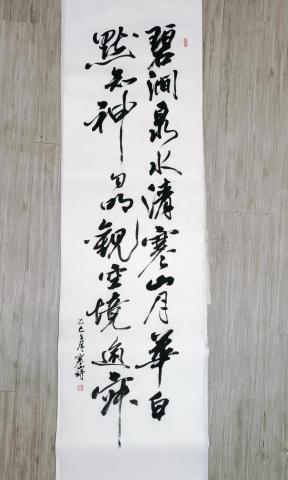 碧澗泉水清寒山月華白
默知神自明觀空境逾寂
乙巳 寒山詩